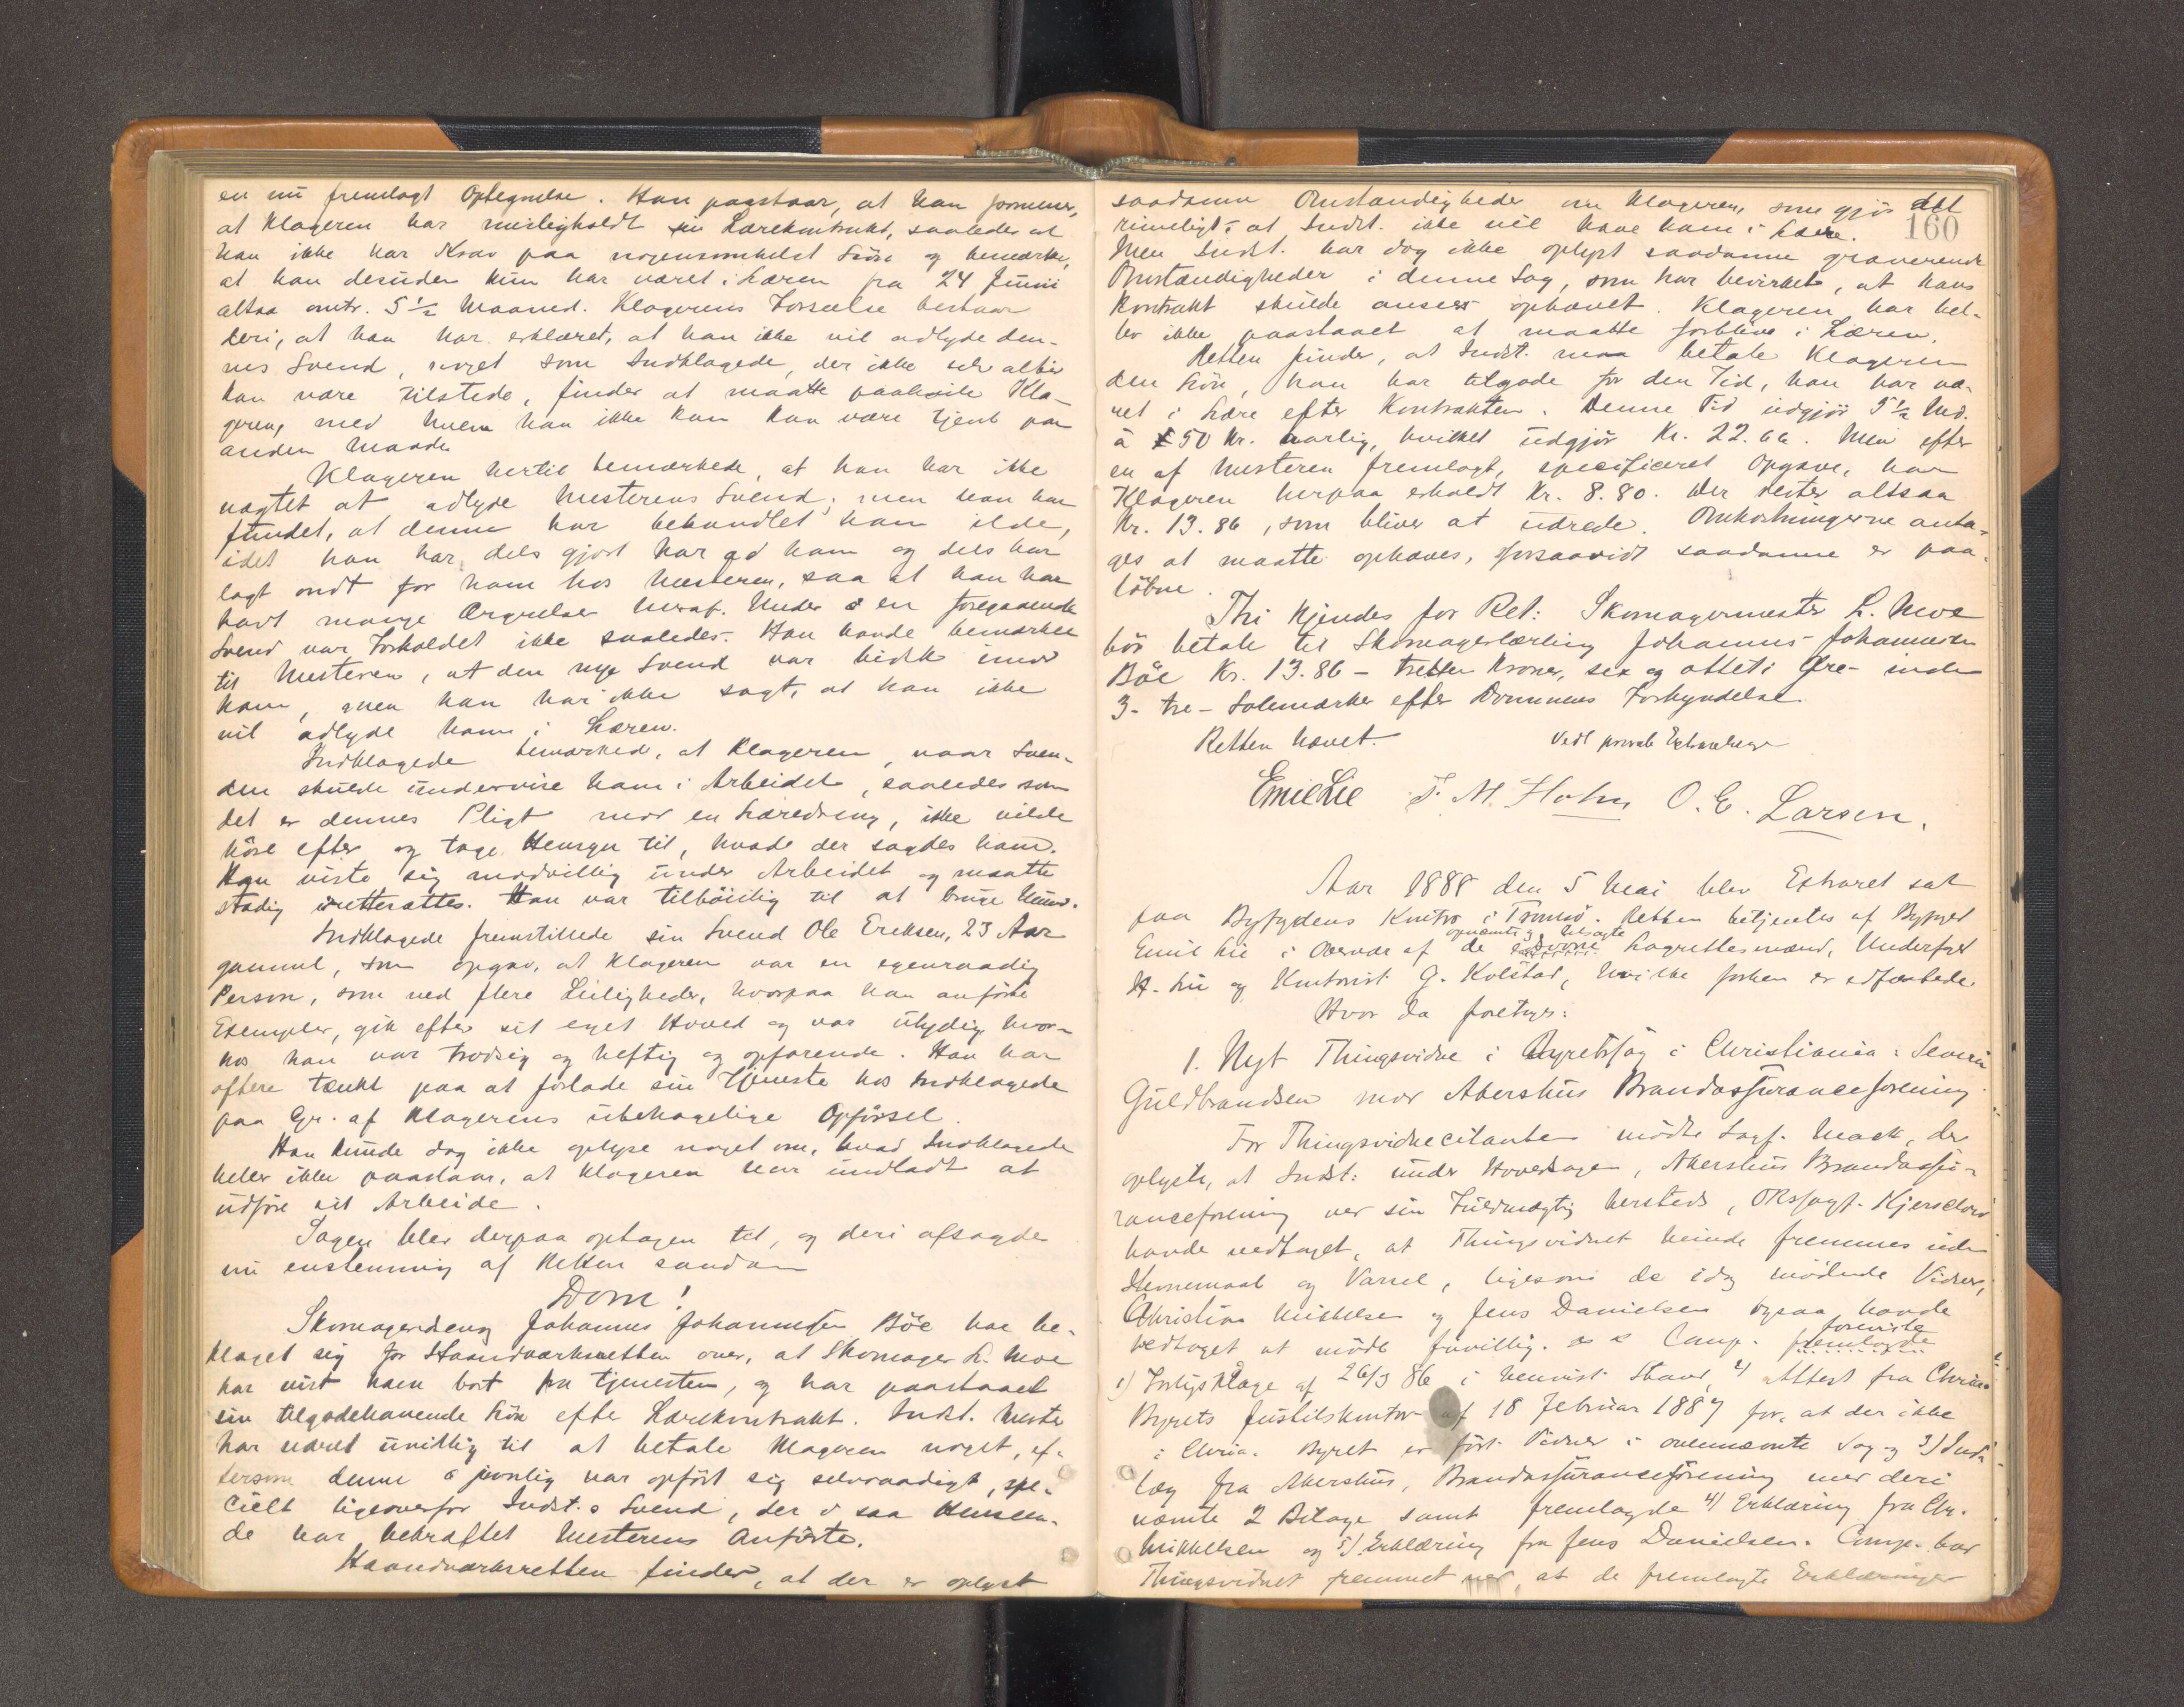 en nu fremlagt Optegnelse. Han paastaar, at han formener,
at Klageren har misligholdt sin Lærekontrakt, saaledes at
han ikke har Krav paa nogensomhelst Løn og bemærker,
at han desuden kun har været i Læren fra 24 Juni
altsaa omtr. 5 1/2 Maaned. Klagerens Forseelse bestaar
deri, at han har erklæret, at han ikke vil adlyde den-
nes Svend, noget som Indklagede, der ikke selv altid
kan være tilstede, finder at maatte paahvile Kla-
geren, med hvem han ikke kan kan være tjent paa
anden Maade.
Klageren hertil bemærkede, at han har ikke
nægtet at adlyde Mesterens Svend; men han har
fundet, at denne har behandlet ham ilde,
idet han har dels gjort Nar ad ham og dels har
lagt ondt for ham hos Mesteren, saa at han har
havt mange Ærgrelser heraf. Under en foregaaende
Svend var Forholdet ikke saaledes. Han havde bemærket
til Mesteren, at den nye Svend var bidsk imod
ham, men han har ikke sagt, at han ikke
vil adlyde ham i Læren.
Indklagede bemærkede, at Klageren, naar Sven-
den skulde undervise ham i Arbeidet, saaledes som
det er dennes Pligt mod en Læredreng, ikke vilde
høre efter og tage Hensyn til, hvade der sagdes ham.
Han viste sig modvillig under Arbeidet og maatte
stadig irettesættes. Han var tilbøielig til at bruge Mund.
Indklagede fremstillede sin Svend Ole Eriksen, 23 Aar
gammel, som opgav, at Klageren var en egenraadig
Person, som ved flere Leiligheder, hvorpaa han anførte
Exempler, gik efter sit eget Hoved og var ulydig, hvor-
hos han var trodsig og heftig og opfarende. Han har
oftere tænkt paa at forlade sin Tjeneste hos Indklagede
paa Gr. af Klagerens ubehagelige Opførsel.
Han kunde dog ikke oplyse noget om, hvad Indklagede
heller ikke paastaar, at Klageren har undladt at
udføre sit Arbeide.
Sagen blev derpaa optagen til, og deri afsagde
nu enstemmig af Retten saadan
Dom!
Skomagerdreng Johannes Johannesen Böe har be-
klaget sig for Haandværksretten over, at Skomager L. Moe
har vist ham bort fra Tjenesten, og har paastaaet
sin tilgodehavende Løn efter Lærekontrakt. Indkl. Mester
har været uvillig til at betale Klageren noget, ef-
tersom denne jevnlig har opført sig selvraadigt, spe-
cielt ligeoverfor Indkl.s Svend, der i saa Henseen-
de har bekræftet Mesterens Anførte.
Haandværksretten finder, at der er oplyst
saadanne Omstændigheder om Klageren, som gjør det
rimeligt, at Indkl. ikke vil have ham i Lære.
160
Men Indkl. har dog ikke oplyst saadanne graverende
Omstændigheder i denne Sag, som har bevirket, at hans
Kontrakt skulde ansees ophævet. Klageren har hel-
ler ikke paastaaet at maatte forblive i Læren.
Retten finder, at Indkl. maa betale Klageren
den Løn, han har tilgode for den Tid, han har væ-
ret i Lære efter Kontrakten. Denne Tid udgjør 5 1/2 Md.
à 50 Kr. aarlig, hvilket udgjør Kr. 22.66. Men efter
en af Mesteren fremlagt, specificeret Opgave, har
Klageren herpaa erholdt Kr. 8.80. Der rester altsaa
Kr. 13.86, som bliver at udrede. Omkostningerne anta-
ges at maatte ophæves, forsaavidt saadanne er paa-
løbne.
Thi kjendes for Ret: Skomagermester L. Moe
bør betale til Skomagerlærling Johannes Johannesen
Böe Kr. 13.86 - tretten Kroner, sex og otteti Øre - inden
3 - tre - Solemærker efter Dommens Forkyndelse.
Retten hævet.
Emil Lie T. M. Holm O. E. Larsen.
Aar 1888 den 5 Mai blev Extraret sat
paa Byfogdens Kontor i Tromsø. Retten betjentes af Byfoged
opnævnte og tilsagte
Emil Lie i Overvær af de edsvorne Lagrettesmænd, Underfoged
H. Lie og Kontorist G. Kolstad, hvilke forhen er edfæstede.
Hvor da foretoges:
1. Nyt Thingsvidne i Byretssag i Christiania: Severin
Guldbrandsen mod Akershus Brandassuranceforening
For Thingsvidnecitanten mødte Sagf. Mack, der
oplyste, at Indst. under Hovedsagen, Akershus Brandassu-
ranceforening ved sin Fuldmægtig hersteds, ORssagf. Kjerschow
havde vedtaget, at Thingsvidnet kunde fremmes uden
Stevnemaal og Varsel, ligesom de idag mødende Vidner,
Christian Mikkelsen og Jens Danielsen ogsaa havde
foreviste
vedtaget at møde frivillig. Comp. fremlagde
1) Forligsklage af 26/3 86 i henvist Stand, 2) Attest fra Chria.
Byrets Justitskontor af 18 Februar 1887 for, at der ikke
i Chria. Byret er ført Vidner i ovennævnte Sag og 3) Ind-
læg fra Akershus Brandassuranceforening med deri
nævnte 2 Bilage samt fremlagde 4) Erklæring fra Chr.
Mikkelsen og 5) Erklæring fra Jens Danielsen. Comp. bad
Thingsvidnet fremmet ved, at de fremlagte Erklæringer